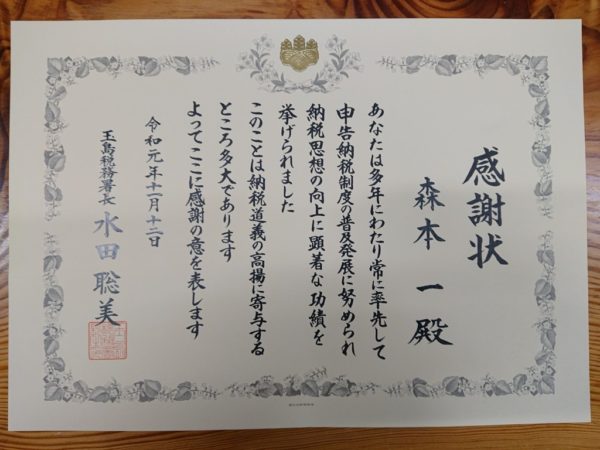 感謝状
森本 一殿
あなたは多年にわたり常に率先して
申告納税制度の普及発展に努められ
納税思想の向上に顕著な功績を
挙げられました
このことは納税道義の高揚に寄与する
ところ多大であります
よってここに感謝の意を表します
令和元年十一月十二日
玉島税務署長 水田 聡美